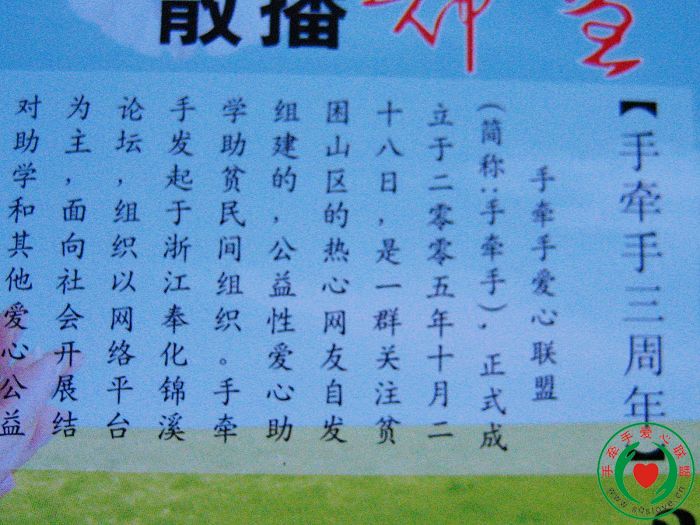 散播
【手牵手三周年】
手牵手爱心联盟
（简称：手牵手），正式成
立于二零零五年十月二
十八日，是一群关注贫
困山区的热心网友自发
组建的，公益性爱心助
学助贫民间组织。手牵
手发起于浙江奉化锦溪
论坛，组织以网络平台
为主，面向社会开展结
对助学和其他爱心公益
手牵手爱心联盟